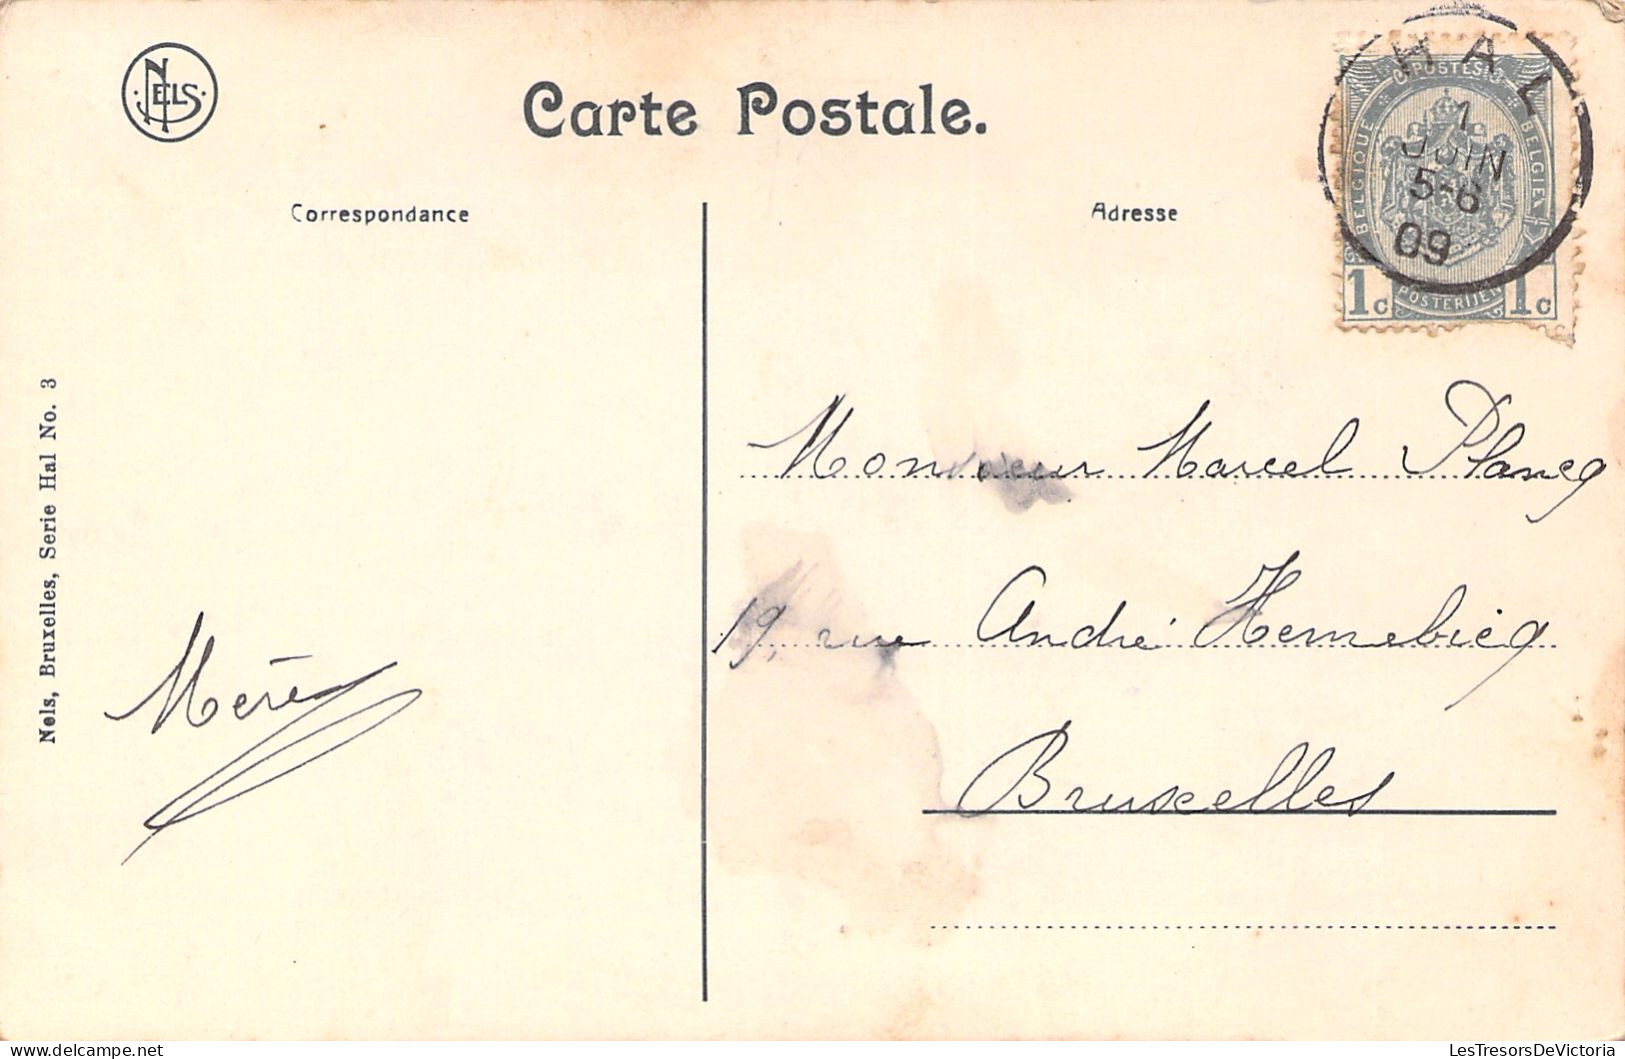 NELS
Carte Postale.
Correspondance
Adresse
HAL
1
JUIN
5-6
09
POSTES
BELGIQUE
BELGIË
1c
POSTERIJEN
1c
Nels, Bruxelles, Serie Hal No. 3
Monsieur Marcel Plancq
19, rue André Hennebicq
Bruxelles
LesTresorsDeVictoria